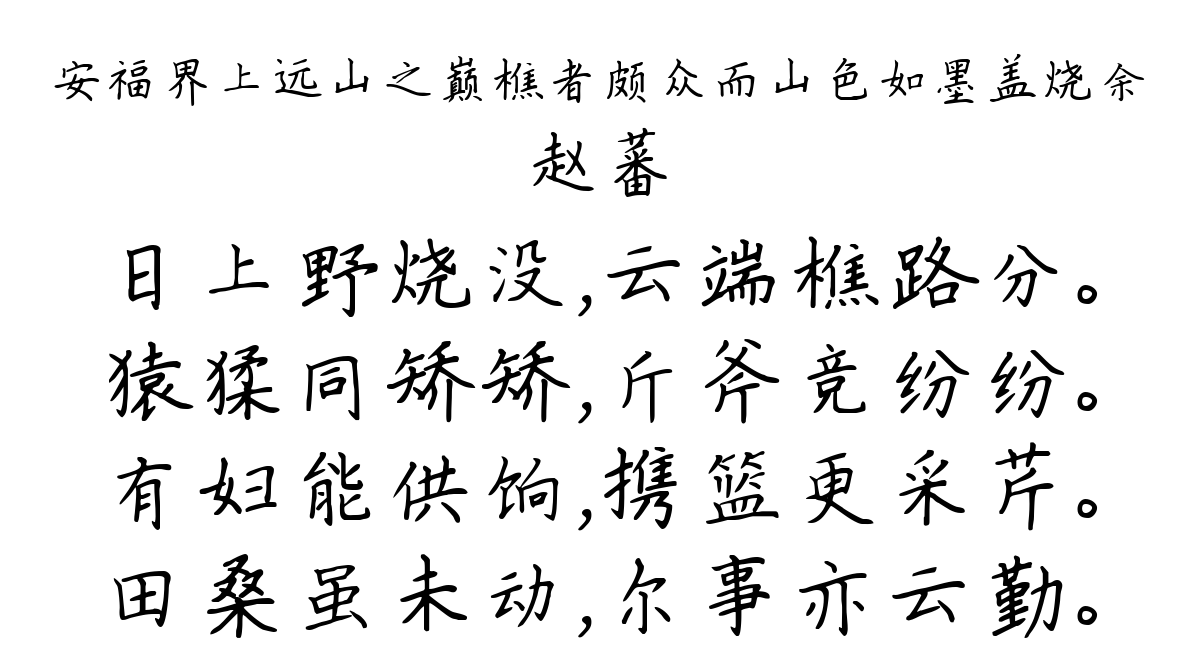 安福界上远山之巅樵者颇众而山色如墨盖烧余
赵蕃
日上野烧没,云端樵路分。
猿猱同矫矫,斤斧竞纷纷。
有妇能供饷,携篮更采芹。
田桑虽未动,尔事亦云勤。